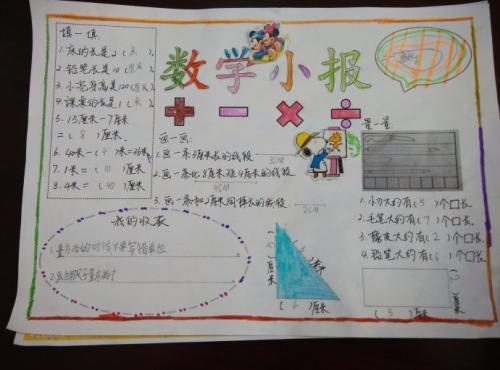 数学小报
填一填:
1.床的长是2(米).
2.铅笔长是10(厘米)
3.小亮身高120(厘米)
4.课桌的长是1(米).
5.15厘米-7厘米
=(8)厘米.
6.40米-(4)米=36米
7.1米=(10)厘米.
8.4米=(40)厘米.
画一画:
1.画一条3厘米长的线段
3CM
2.画一条比8厘米短4厘米的线段
4CM
3.画一条和2厘米同样长的线段
2CM
量一量:
1.小刀大约有(5)个口长.
2.毛笔大约有(7)个口长.
3.橡皮大约有(2)个口长
4.铅笔大约有(6)个口长.
我的收获
1.量
的时候不要写错单位
2.
厘米
厘米
()厘米
厘米
(5)厘米